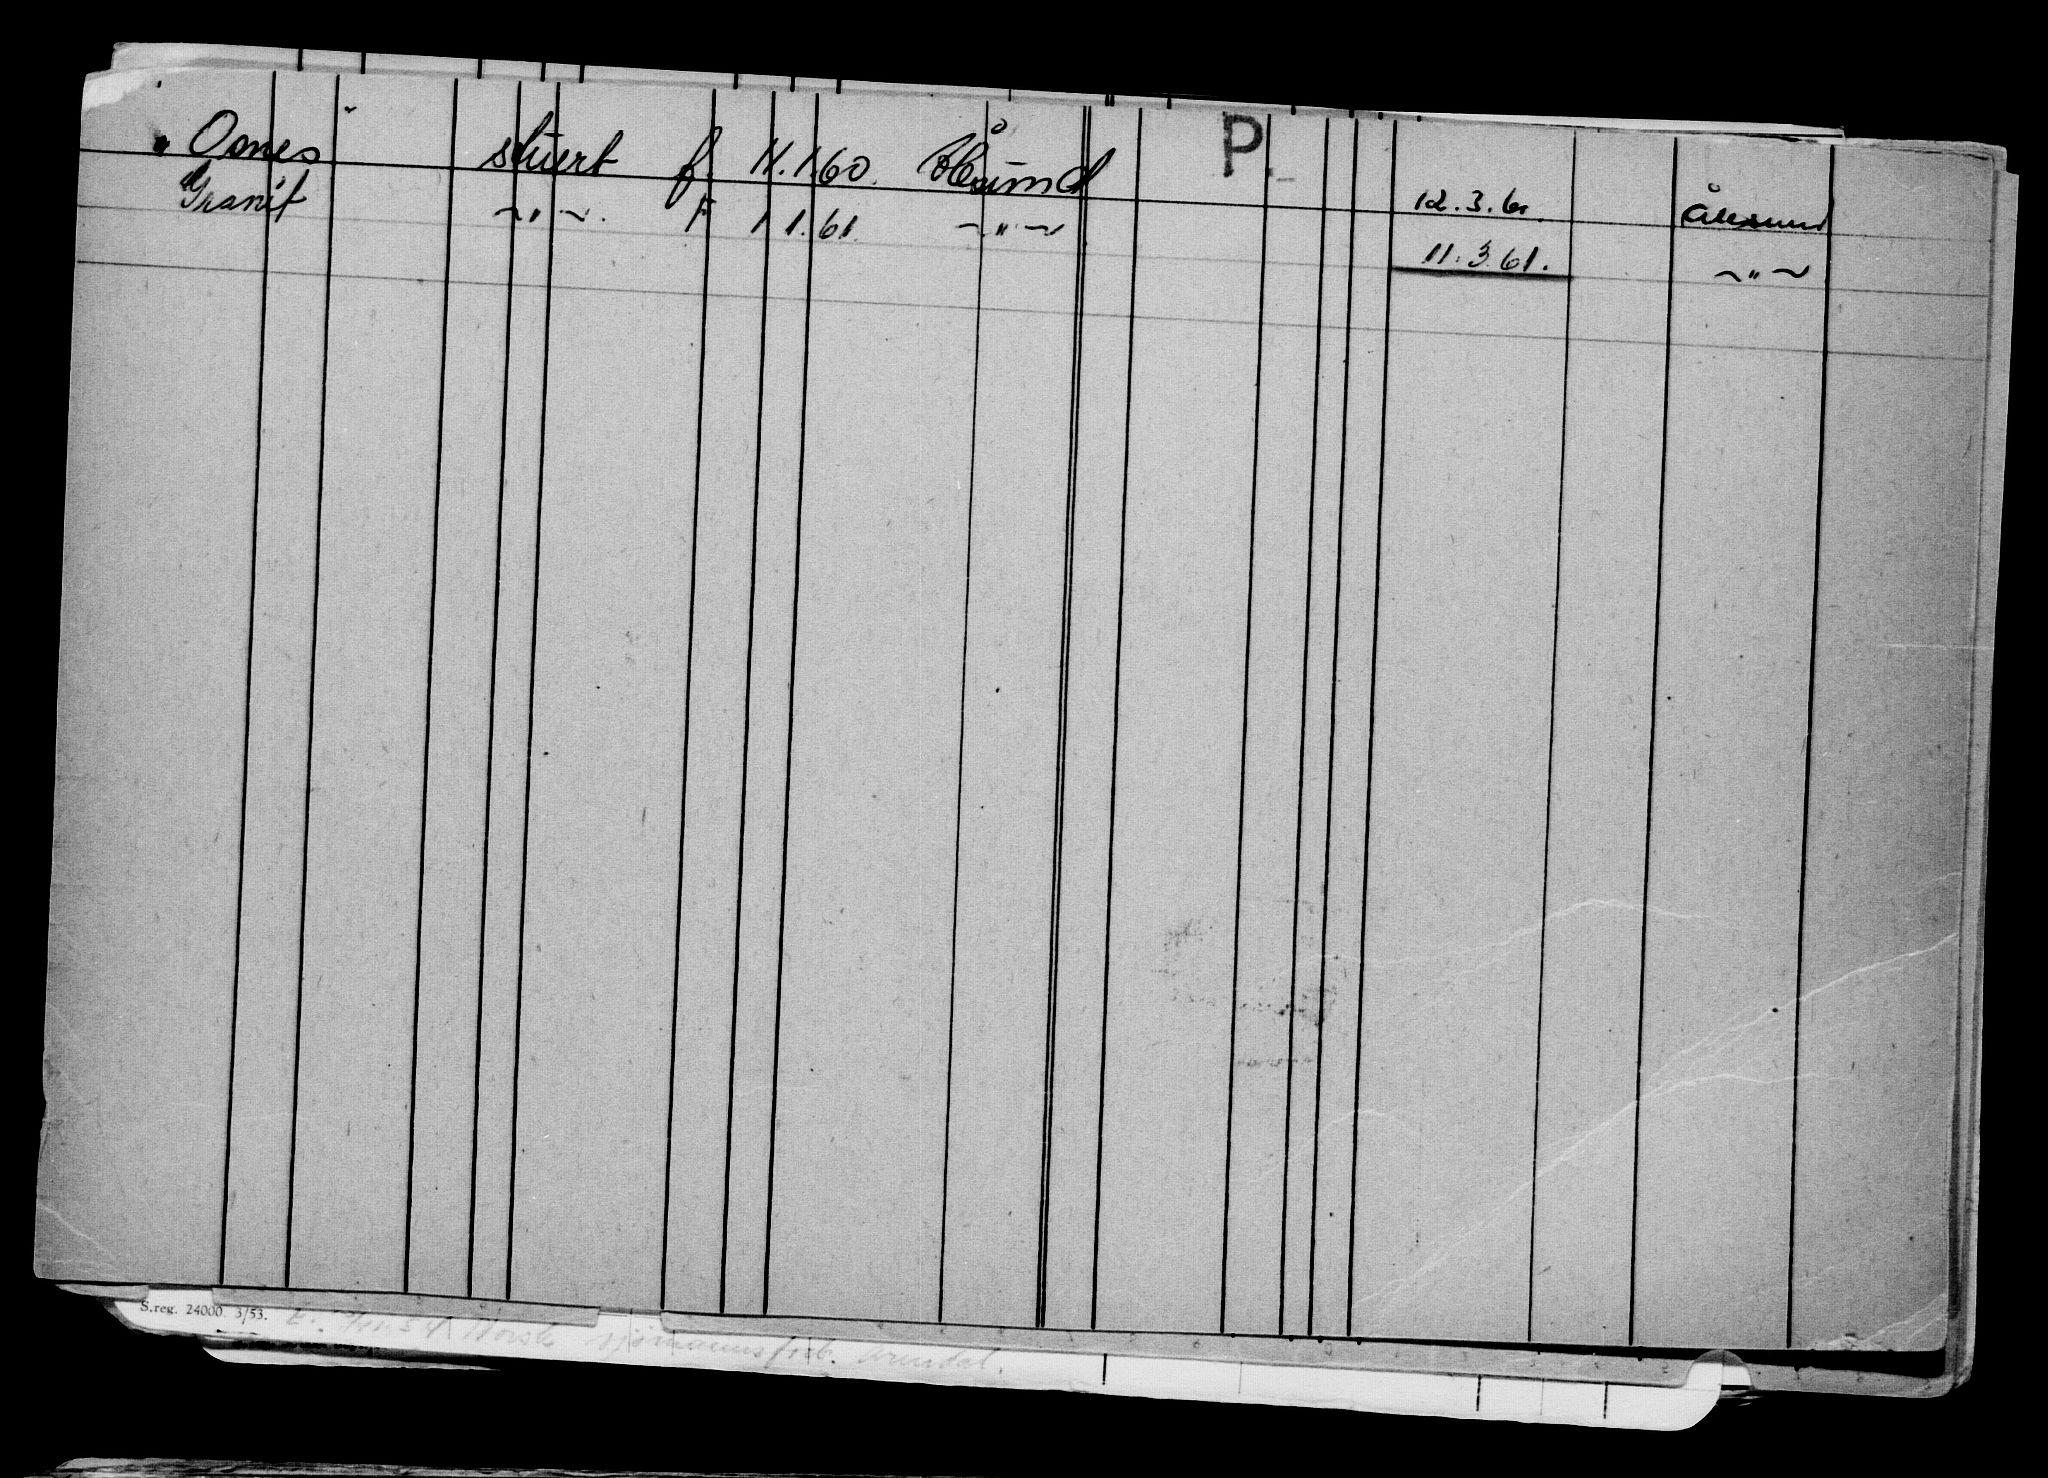 " Osnes stuert f. 11.1.60. Ålesund P
Granit ~"~. F 1 1.61. ~"~ 12.3.61. Ålesund
11.3.61. ~"~
S.reg. 24000. 3/53. Norsk sjømannsforb. Arendal.